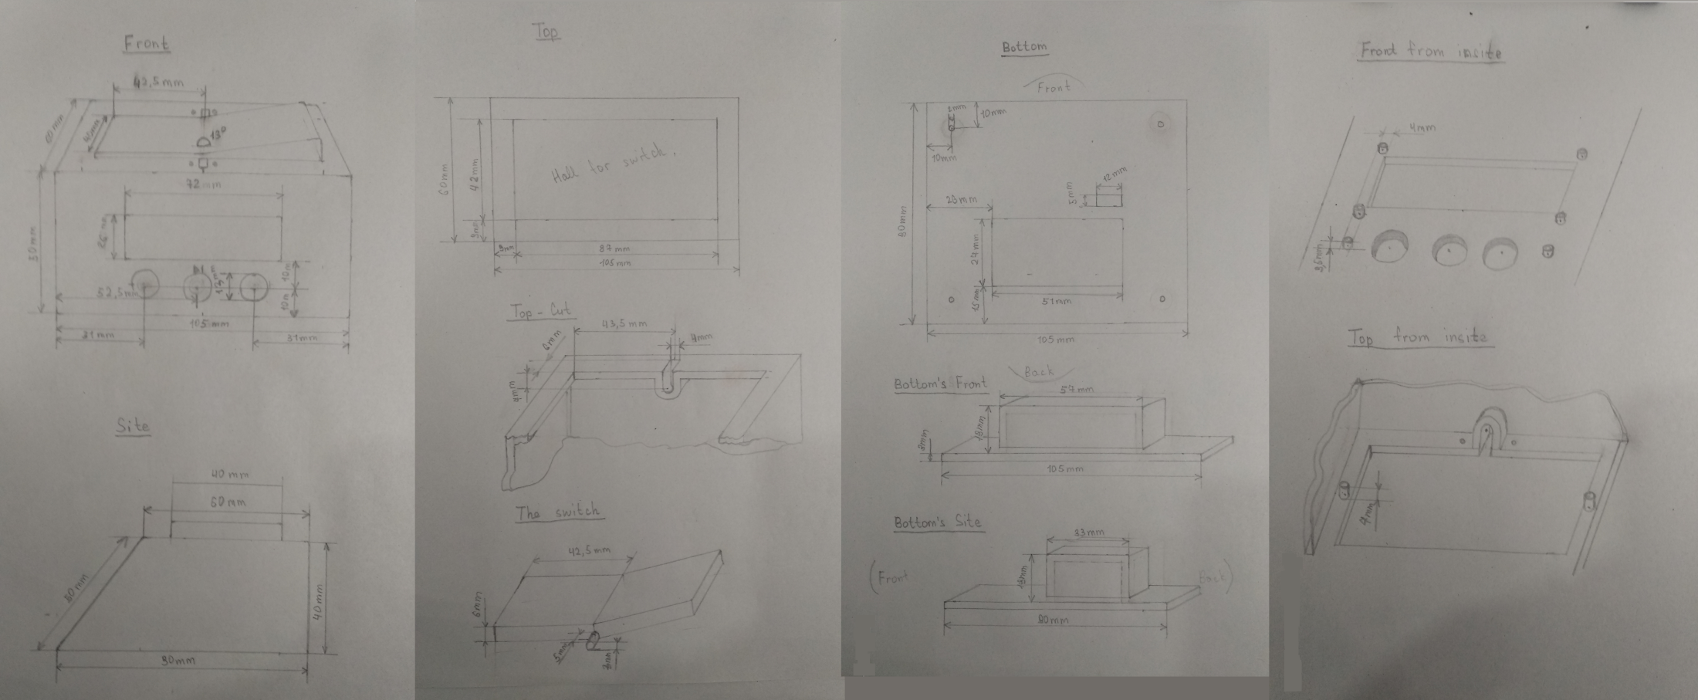 Front
43,5mm
60mm
13°
72mm
50mm
52,5m
10m
10m
105mm
31mm
31mm
Site
40mm
60mm
50mm
40mm
80mm
Top
Hall for switch.
60mm
42mm
9mm
9mm
87mm
105mm
Top-Cut
43,5mm
4mm
6mm
4mm
The switch
42,5mm
6mm
5mm
Bottom
Front
2mm
10mm
10mm
12mm
5mm
80mm
24mm
15mm
51mm
105mm
Back
Bottom's Front
57mm
18mm
105mm
Bottom's Site
33mm
(Front
Back)
18mm
80mm
Front from insite
4mm
3,5mm
Top from insite
4mm